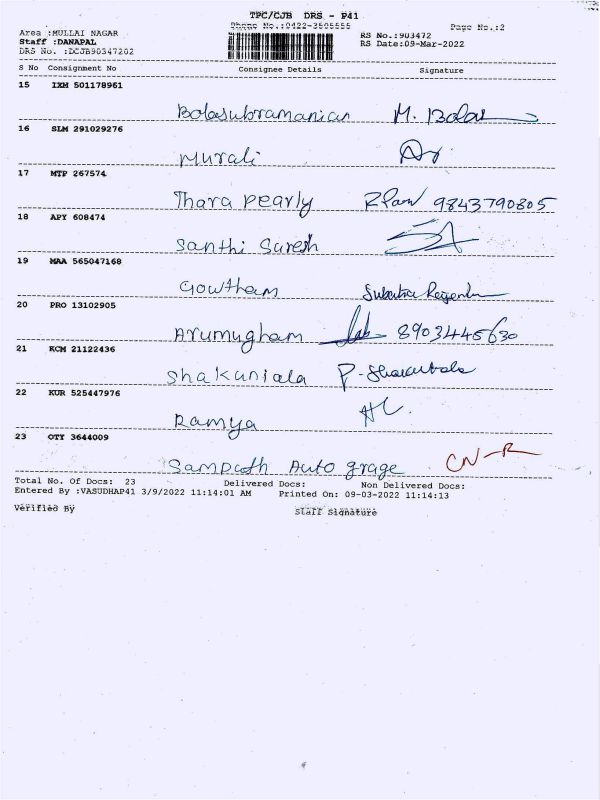 TPC/CJB DRS - P41
Phone No.:0422-3505555 Page No.:2
Area :MULLAI NAGAR
Staff :DANAPAL
DRS No. :DCJB90347202
RS No.:903472
RS Date:09-Mar-2022
S No Consignment No Consignee Details Signature
15 IXM 501178961
Balasubramanian M. Balas
16 SLM 291029276
Murali
17 MTP 267574
Thara pearly 9843790805
18 APY 608474
Santhi Suresh
19 MAA 565047168
Gowtham
20 PRO 13102905
Arumugham 8903445630
21 KCM 21122436
Shakuntala P-Shakuntala
22 KUR 525447976
Ramya
23 OTY 3644009
Sampath Auto grage CN-R
Total No. Of Docs: 23 Delivered Docs: Non Delivered Docs:
Entered By :VASUDHAP41 3/9/2022 11:14:01 AM Printed On: 09-03-2022 11:14:13
Verified By Staff Signature